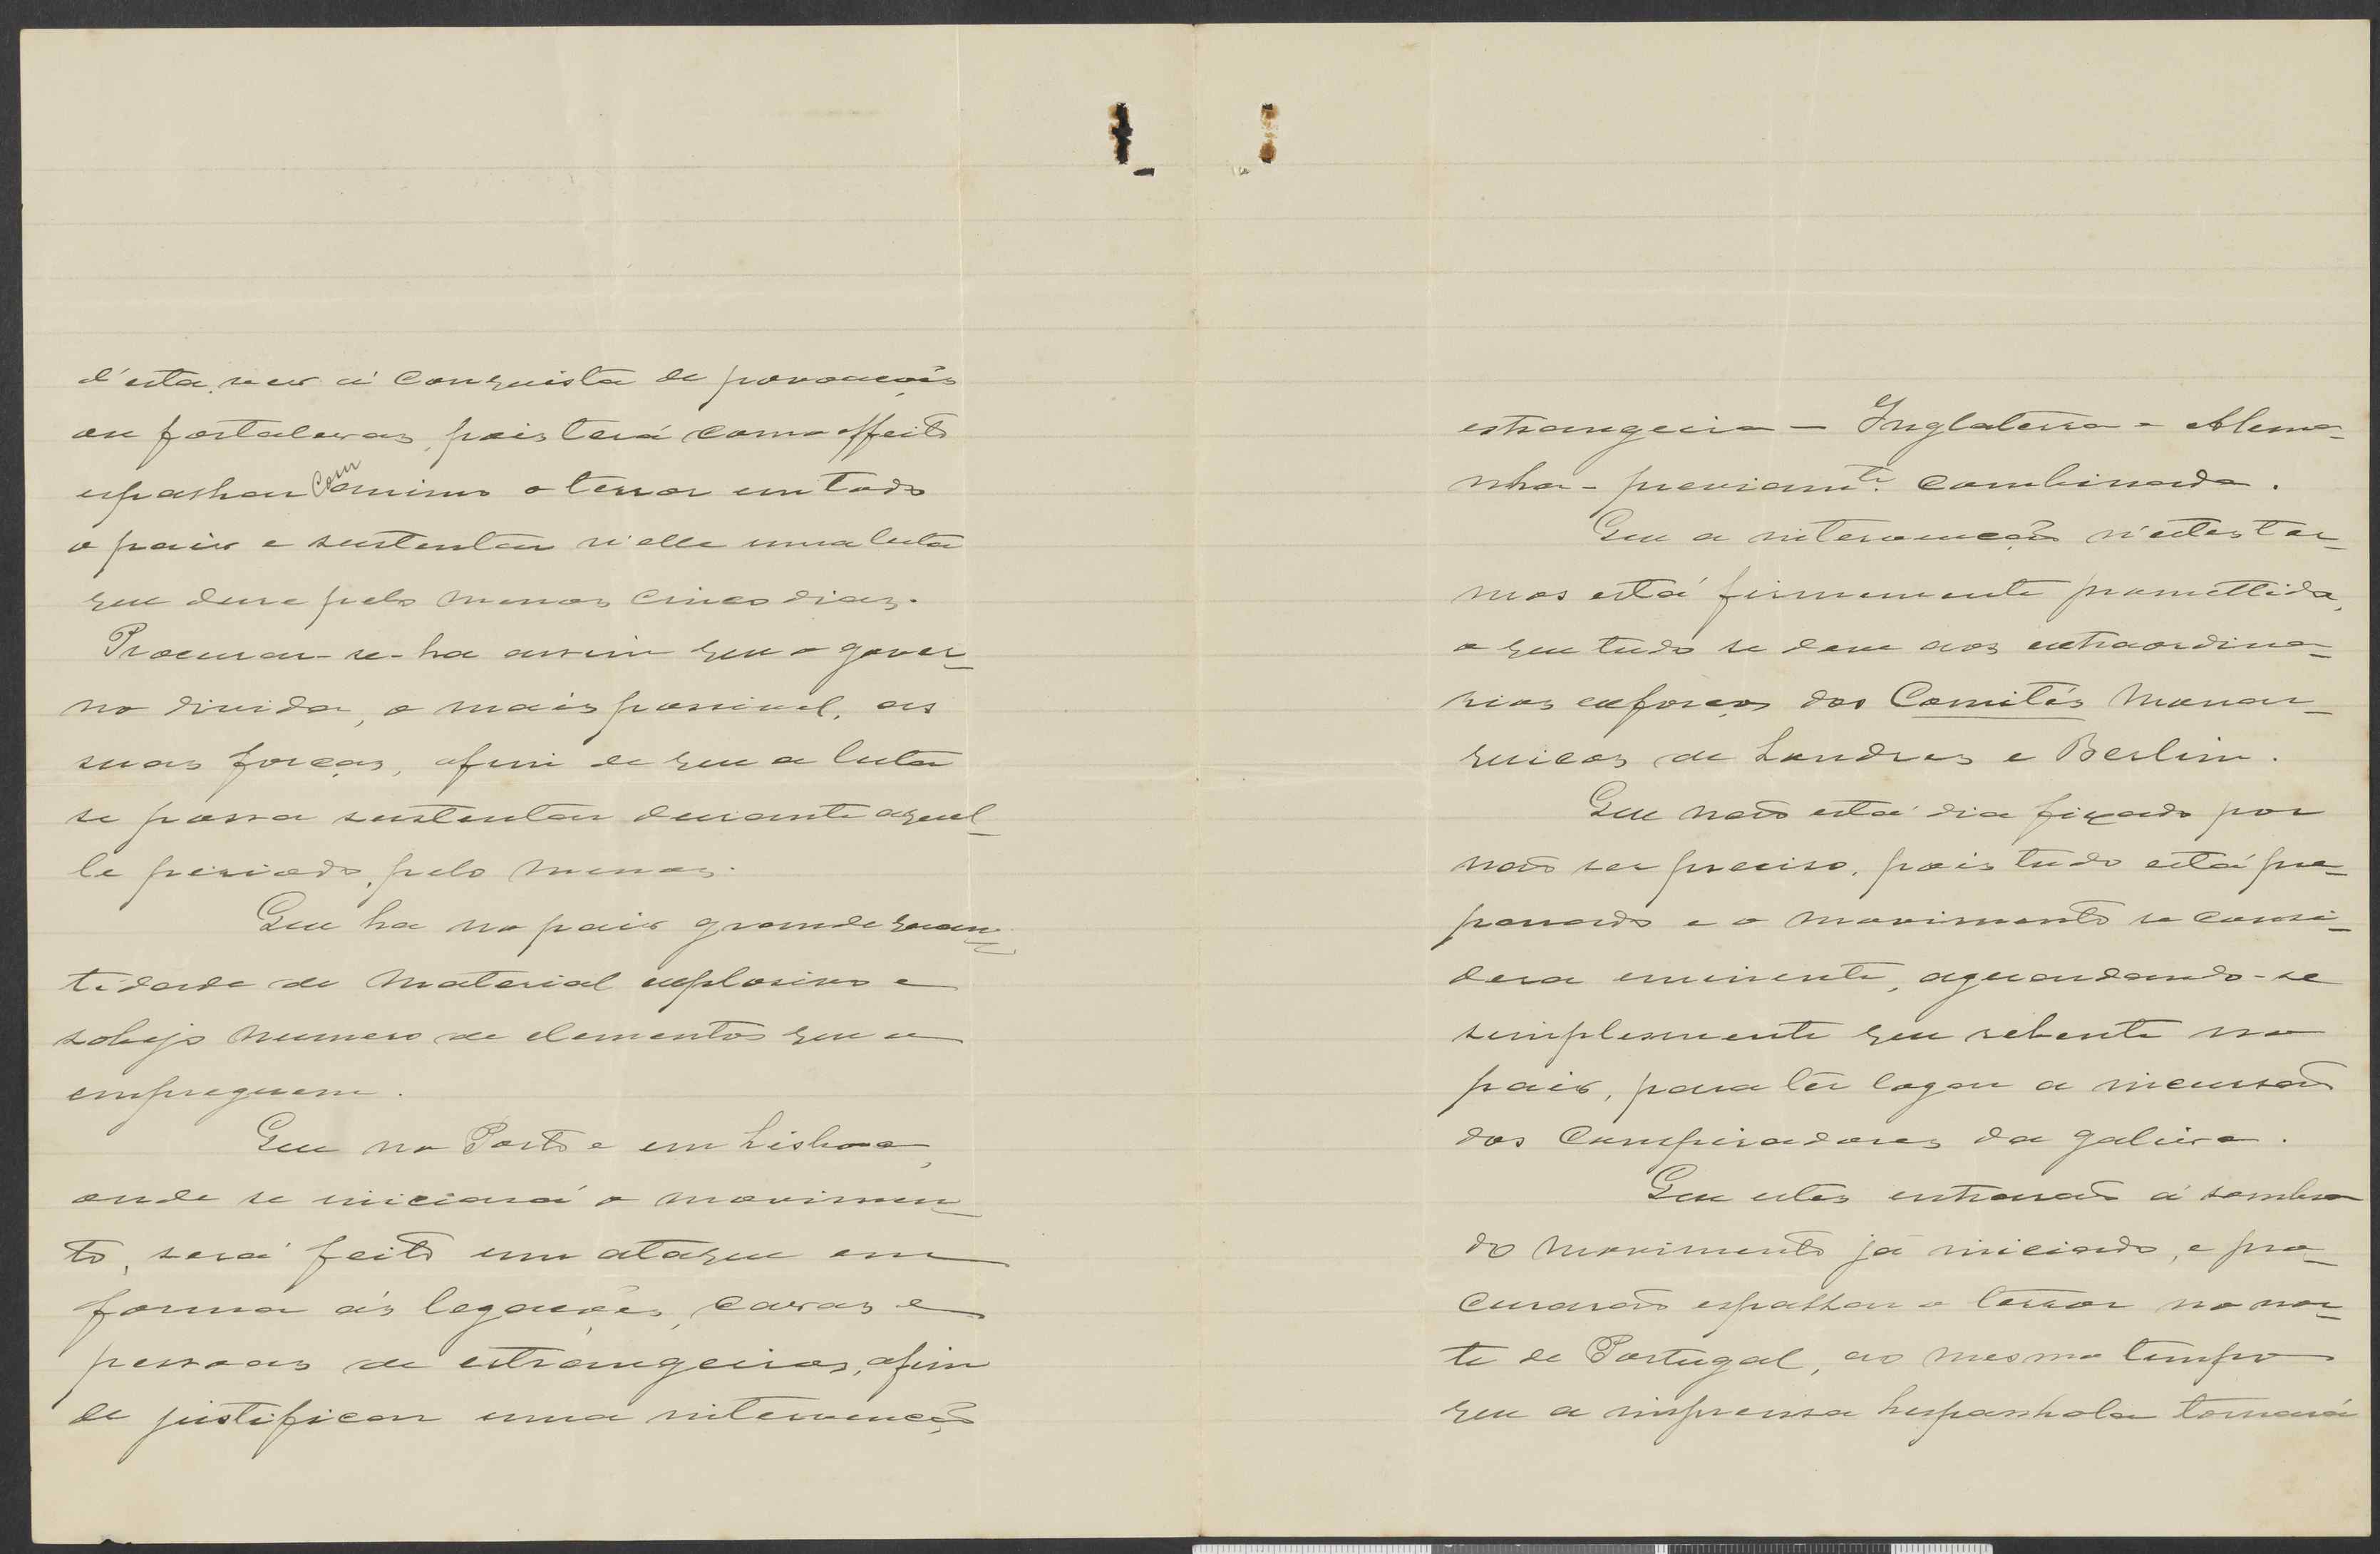 d'esta vez á conquista de povoações
ou fortalezas, pois terá como effeito
espalhar com animo o terror em todo
o paiz e sustentar n'elle uma lucta
que dure pelo menos cinco dias.
Procurar-se-ha assim que o gover-
no divida, o mais possivel, as
suas forças, afim de que a lucta
se possa sustentar durante aquel-
le periodo, pelo menos.
Que ha no paiz grande quan-
tidade de material explosivo e
sobejo numero de elementos que o
empreguem.
Que no Porto e em Lisboa,
onde se iniciará o movimen-
to, será feito um ataque em
forma ás legações, casas e
pessoas de estrangeiros, afim
de justificar uma intervenção
estrangeira - Inglaterra e Alema-
nha - previamte. combinada.
Que a intervenção n'estes ter-
mos está firmemente promettida,
o que tudo se deve aos extraordina-
rios exforços dos Comités monar-
quicos de Londres e Berlim.
Que não está dia fixado por
não ser preciso, pois tudo está pre-
parado e o movimento se consi-
dera eminente, aguardando-se
simplesmente que rebente no
paiz, para têr logar a incursão
dos conspiradores da galiza.
Que estes entrarão á sombra
do movimento já iniciado, e pro-
curarão espalhar o terror no nor-
te de Portugal, ao mesmo tempo
que a imprensa hespanhola tomará